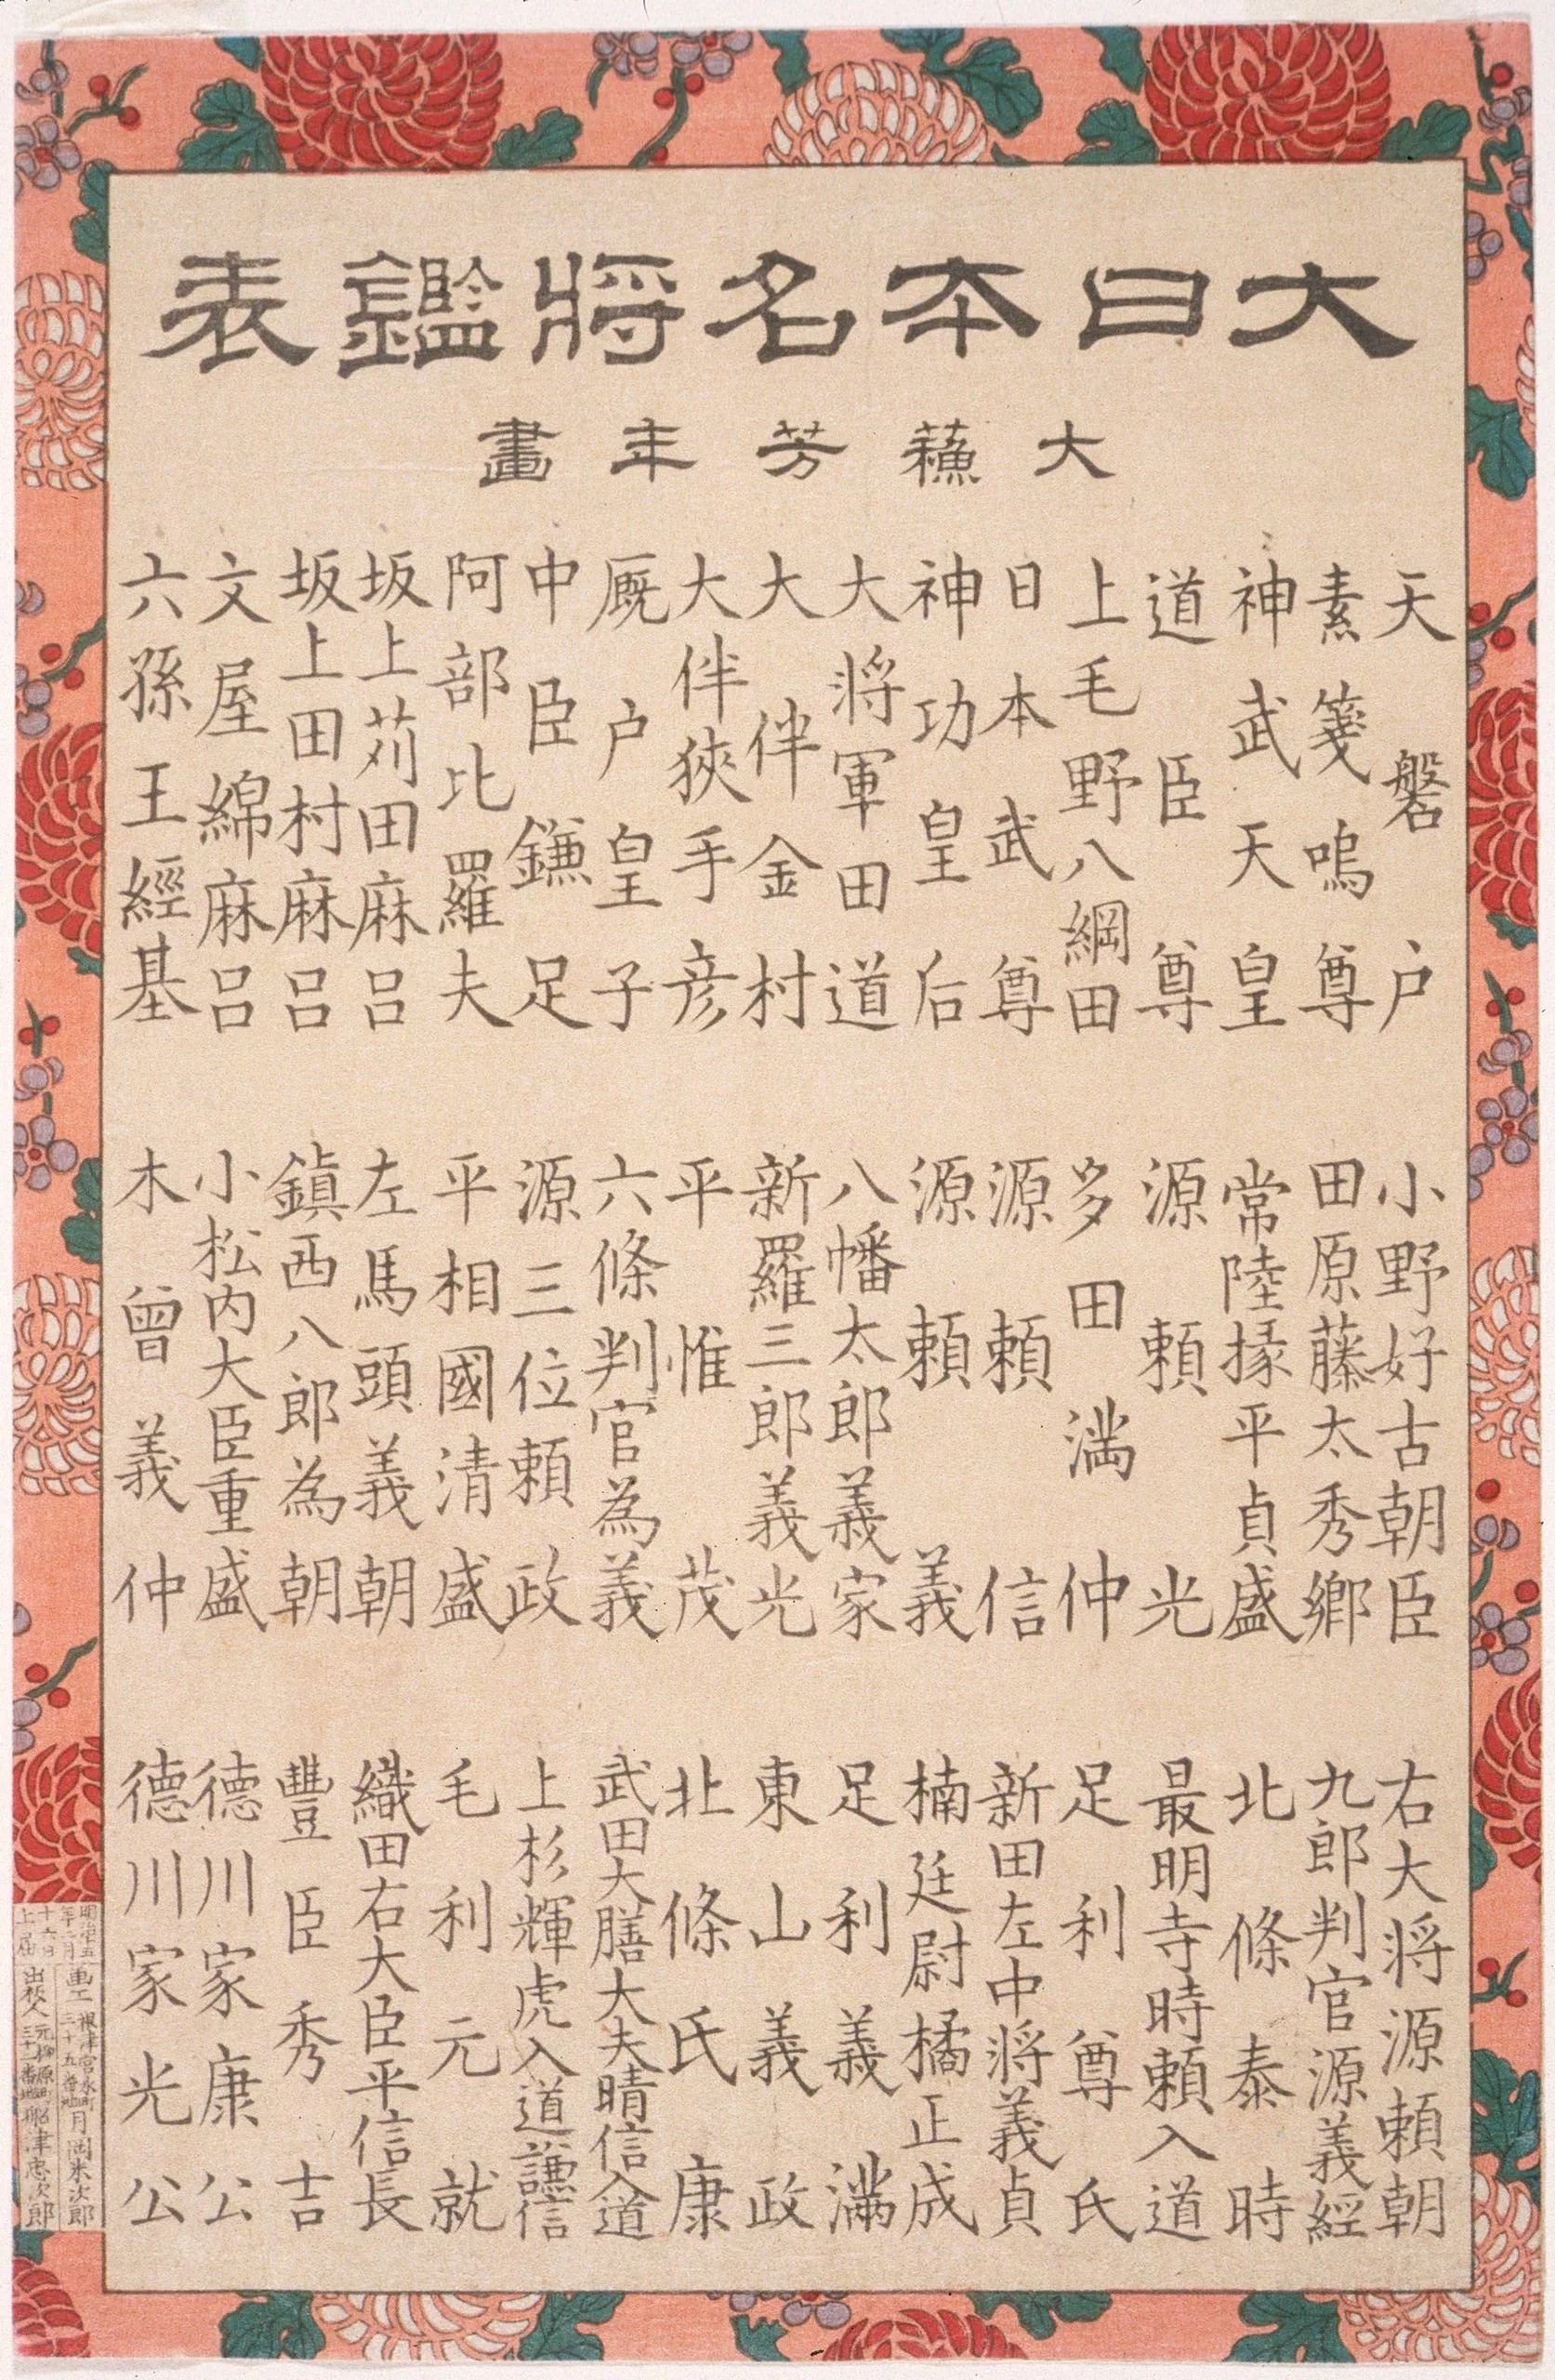 大日本名將鑑表
大蘓芳年畫
天磐戸
素箋嗚尊
神武天皇
道臣尊
上毛野八綱田
日本武尊
神功皇后
大將軍田道
大伴金村
大伴狹手彦
厩戸皇子
中臣鎌足
阿部比羅夫
坂上苅田麻呂
坂上田村麻呂
文屋綿麻呂
六孫王經基
小野好古朝臣
田原藤太秀鄉
常陸掾平貞盛
源頼光
多田満仲
源頼信
源頼義
八幡太郎義家
新羅三郎義光
平惟茂
六條判官為義
源三位頼政
平相國清盛
左馬頭義朝
鎮西八郎為朝
小松内大臣重盛
木曾義仲
右大將源頼朝
九郎判官源義經
北條泰時
最明寺時頼入道
足利尊氏
新田左中將義貞
楠廷尉橘正成
足利義滿
東山義政
北條氏康
武田大膳大夫晴信入道
上杉輝虎入道謙信
毛利元就
織田右大臣平信長
豐臣秀吉
德川家康公
德川家光公
年二月
十六日
上届
画工 根津宮永町三十五番地 月岡米次郎
出板人 船津忠次郎